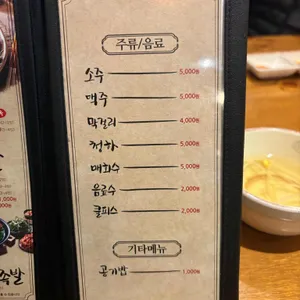 주류/음료
소주 5,000원
맥주 5,000원
막걸리 4,000원
청하 5,000원
매화수 5,000원
음료수 2,000원
쿨피스 2,000원
기타메뉴
공기밥 1,000원
족발